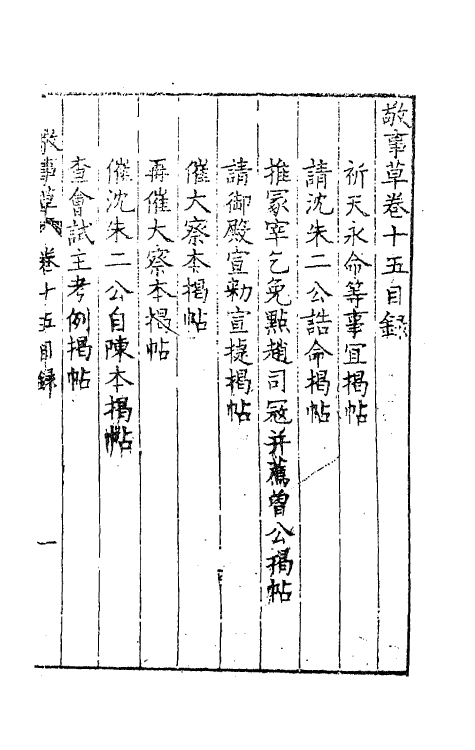 敬事草卷十五目録
祈天永命等事宜揭帖
請沈朱二公誥命揭帖
推冢宰乞免點趙司寇并薦曽公揭帖
請御殿宣勑宣捷揭帖
催大察本揭帖
再催大察本揭帖
催沈朱二公自陳本揭帖
查會試主考例揭帖
敬事草 卷十五目録 一